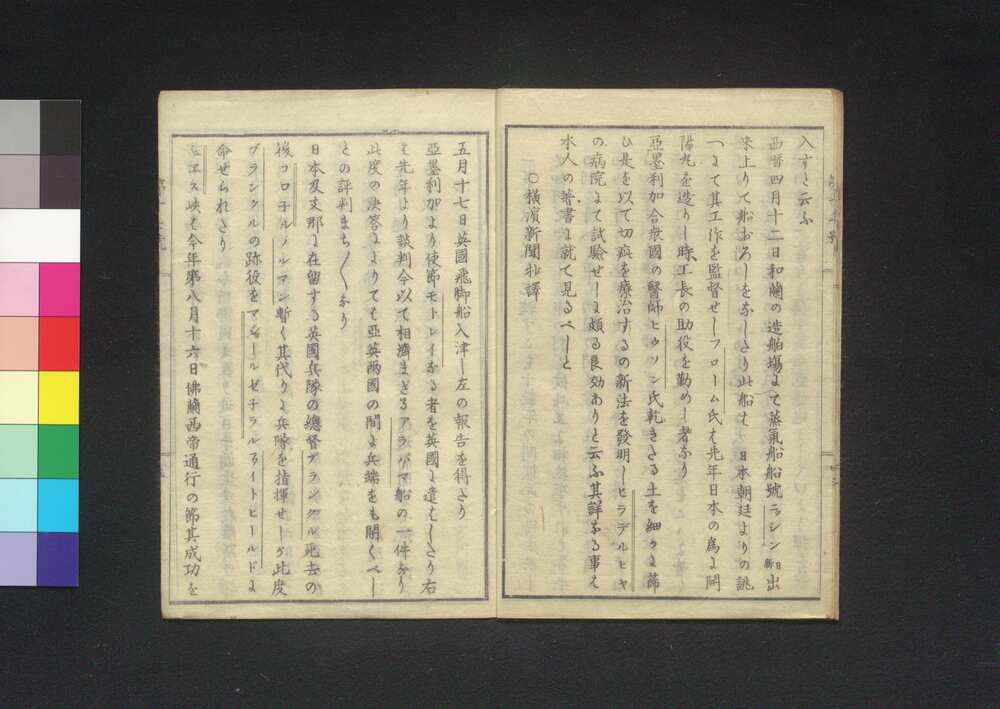 入すと云ふ
西暦四月十二日和蘭の造舶塲にて蒸氣船船號ニッシン日新出
来上りて船おろしをなしたり此船は日本朝廷よりの誂
へにて其工作を監督せしフローム氏は先年日本の為に開
陽丸を造りし時工長の助役を勤めし者なり
亞墨利加合衆國の醫師ヒウソン氏乾きたる土を細かに篩
ひ是を以て切疵を療治するの新法を發明しヒラデルヒヤ
の病院にて試驗せしに頗る良効ありと云ふ其詳なる事は
本人の著書に就て見るべしと
○橫濱新聞抄譯
五月十七日英國飛脚船入津し左の報告を得たり
亞墨利加より使節モトレイなる者を英國に遣はしたり右
は先年より談判今以て相濟まざるアラバマ船の一件なり
此度の決答によりては亞英兩國の間に兵端をも開くべし
との評判まち〱なり
日本及支那に在留する英國兵隊の總督ブランクル死去の
後コロネルノルマン暫く其代りに兵隊を指揮せしが此度
ブランクルの跡役をマジョールゼネラルワイトヒールドに
命せられたり
スエス峽は今年第八月十六日佛蘭西帝通行の節其成功を